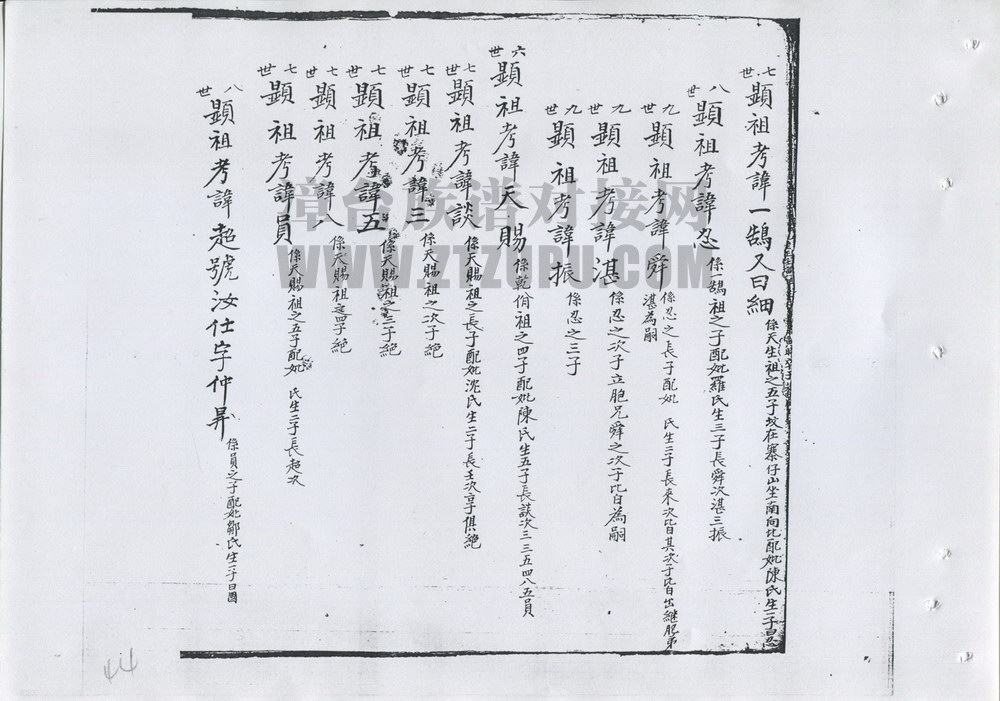 七世 顯祖考諱一鵠又曰細 係天生祖之五子坟在寨仔山坐南向北配妣陳氏生一子曰忍
八世 顯祖考諱忍 係一鵠祖之子配妣羅氏生三子長舜次湛三振
九世 顯祖考諱舜 係忍之長子配妣 氏生二子長來次皆其次子皆出繼胞弟湛為嗣
九世 顯祖考諱湛 係忍之次子立胞兄舜之次子皆為嗣
九世 顯祖考諱振 係忍之三子
六世 顯祖考諱天賜 係乾俏祖之四子配妣陳氏生五子長談次三三五四八五員
七世 顯祖考諱談 係天賜祖之長子配妣沈氏生二子長壬次享俱絶
七世 顯祖考諱三 係天賜祖之次子絶
七世 顯祖考諱五 係天賜祖之三子絶
七世 顯祖考諱八 係天賜祖之四子絶
七世 顯祖考諱員 係天賜祖之五子配妣 氏生二子長超次
八世 顯祖考諱超號汝仕字仲昇 係員之子配妣鄒氏生一子曰圖
章台族谱对接网
WWW.ZTZUPU.COM
44